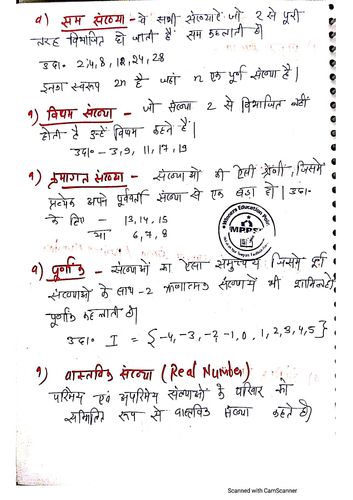 ७) सम संख्या - वे सभी संख्याऐं जो 2 से पूरी
तरह विभाजित हो जाती है सम कहलाती हैं।
उदा. 2,4,8,12,24,28
इनका स्वरूप 2n है जहां n एक पूर्ण संख्या है।
१) विषम संख्या - जो संख्या 2 से विभाजित नहीं
होती है उन्हें विषम कहते हैं।
उदा०- 3,9,11,17,19
१) क्रमागत संख्या - संख्याओं की ऐसी श्रेणी, जिसमें
प्रत्येक अपने पूर्ववर्ती संख्या से एक बड़ा हो। उदा०-
के लिए - 13,14,15
या 6,7,8
MPPS
१) पूर्णांक - संख्याओं का ऐसा समुच्चय जिसमें पूर्ण
संख्याओं के साथ-2 ऋणात्मक संख्याएं भी शामिल हो
पूर्णांक कहलाती हैं।
उदा० I = {-4,-3,-2,-1,0,1,2,3,4,5}
१) वास्तविक संख्या (Real Number)
परिमेय एवं अपरिमेय संख्याओं के परिवार को
सम्मिलित रूप से वास्तविक संख्या कहते हैं।
Scanned with CamScanner